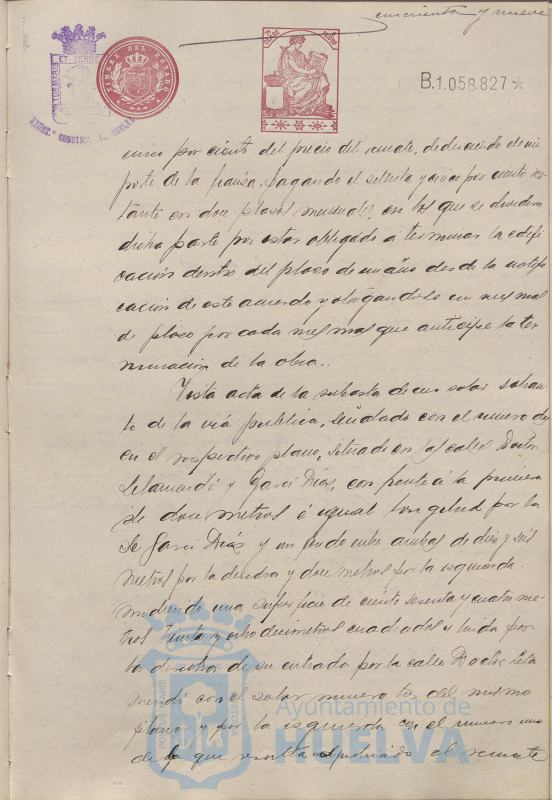 cincuenta y nueve
PORTUS MARIS ET TERRÆ
AYUNT.º CONSTNAL.
TIMBRE DEL ESTADO
B.1.058.827*
cinco por ciento del precio del remate, deduciendo el im
porte de la fianza, pagando el setenta y cinco por ciento res
tante en doce plazos mensuales, en los que se
dicha parte por estar obligado á terminar la edifi
cación dentro del plazo de un año desde la notifi
cación de este acuerdo y otorgandole un mes mas
de plazo por cada mes mas que anticipe la ter
minación de la obra.
Vista acta de la subasta de un solar sobran
te de la vía publica, señalado con el numero dos
en el respectivo plano, situado en las calles Doctor
Letamendi y Garci Díaz, con frente á la primera
de doce metros é igual longitud por la
de Garci Díaz y un fondo entre ambas de diez y seis
metros por la derecha y doce metros por la izquierda
midiendo una superficie de ciento sesenta y cuatro me
tros treinta y ocho decimetros cuadrados y linda por
la derecha de su entrada por la calle Doctor Leta
mendi con el solar numero tres del mismo
plano y por la izquierda con el numero uno
de lo que resulta adjudicado el remate
Ayuntamiento de
HUELVA